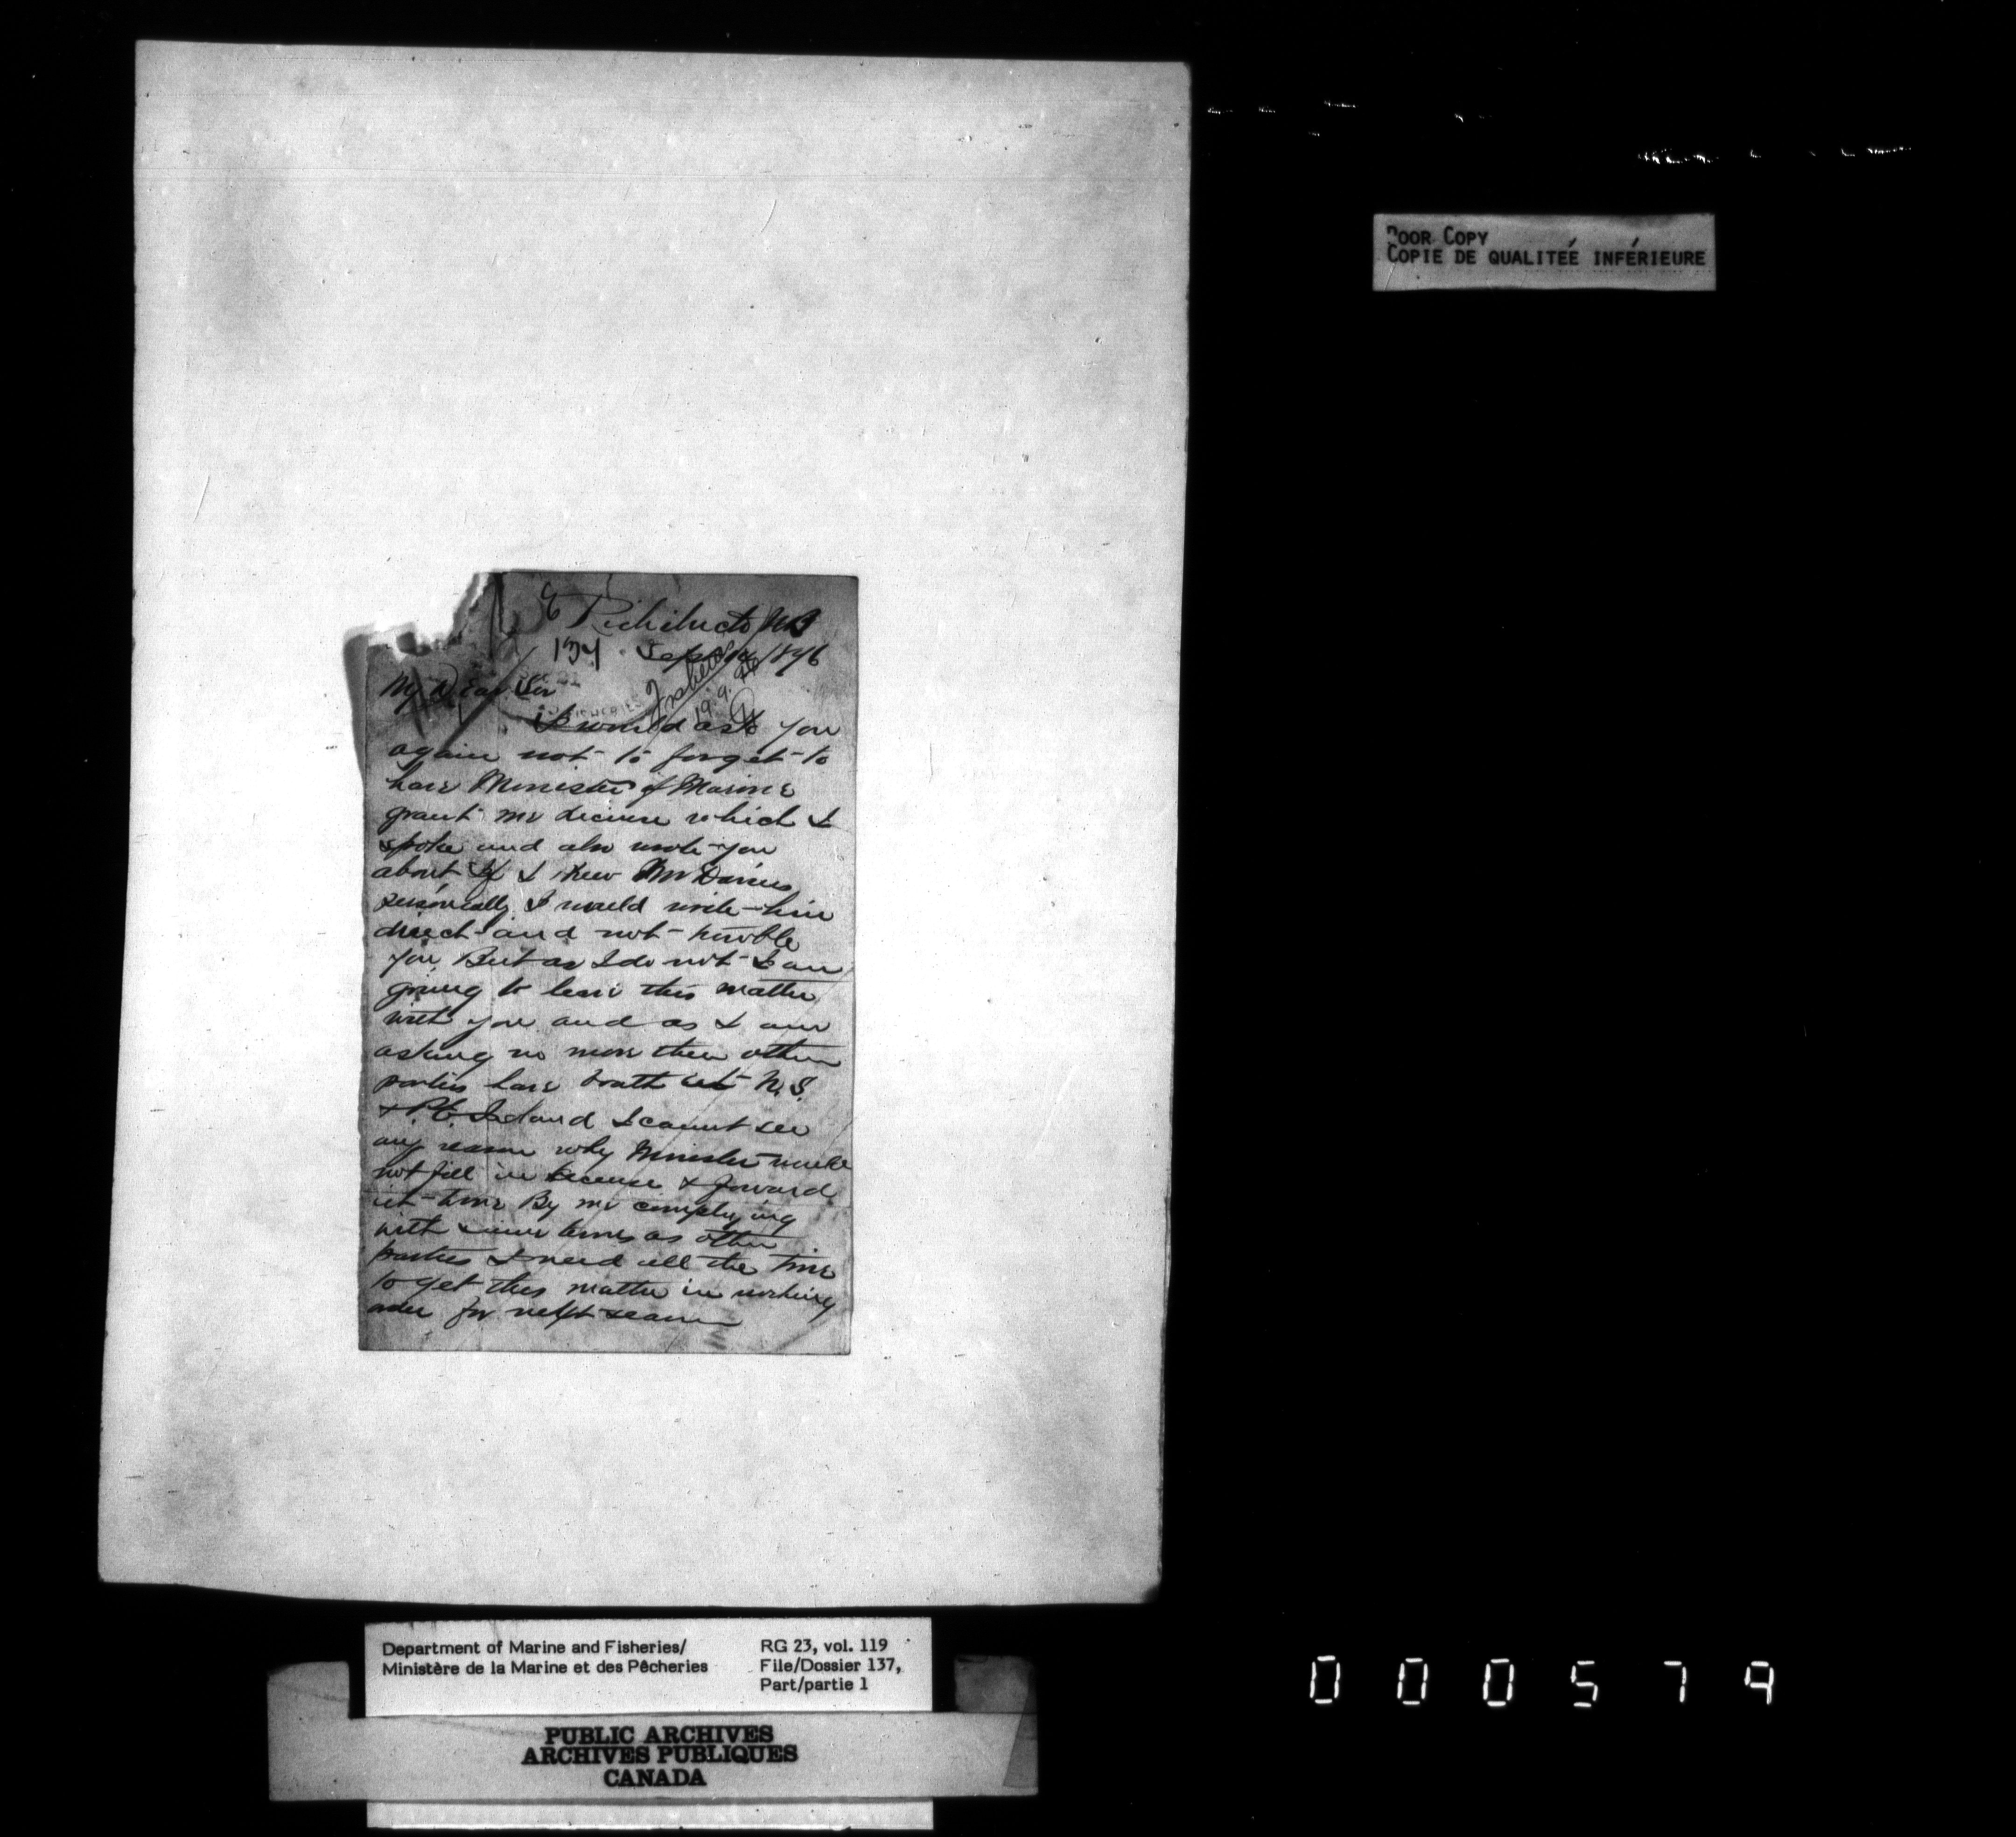 Richibucto NB
137 Sept 14 1896
Fisheries
19.9.96
My Dear Sir
I would ask you
again not to forget to
have Minister of Marine
grant me License which I
spoke and also wrote you
about If I knew Mr Davies
personally I would write him
direct and not trouble
you But as I do not I am
going to leave this matter
with you and as I am
asking no more then other
parties have both in N.S.
& P.E. Island I cannot see
any reason why Minister would
not fill in License & forward
it to me By me complying
with same terms as other
parties I need all the time
to get this matter in working
order for next season
POOR COPY
COPIE DE QUALITEÉ INFÉRIEURE
Department of Marine and Fisheries/
Ministère de la Marine et des Pêcheries
RG 23, vol. 119
File/Dossier 137,
Part/partie 1
PUBLIC ARCHIVES
ARCHIVES PUBLIQUES
CANADA
000579